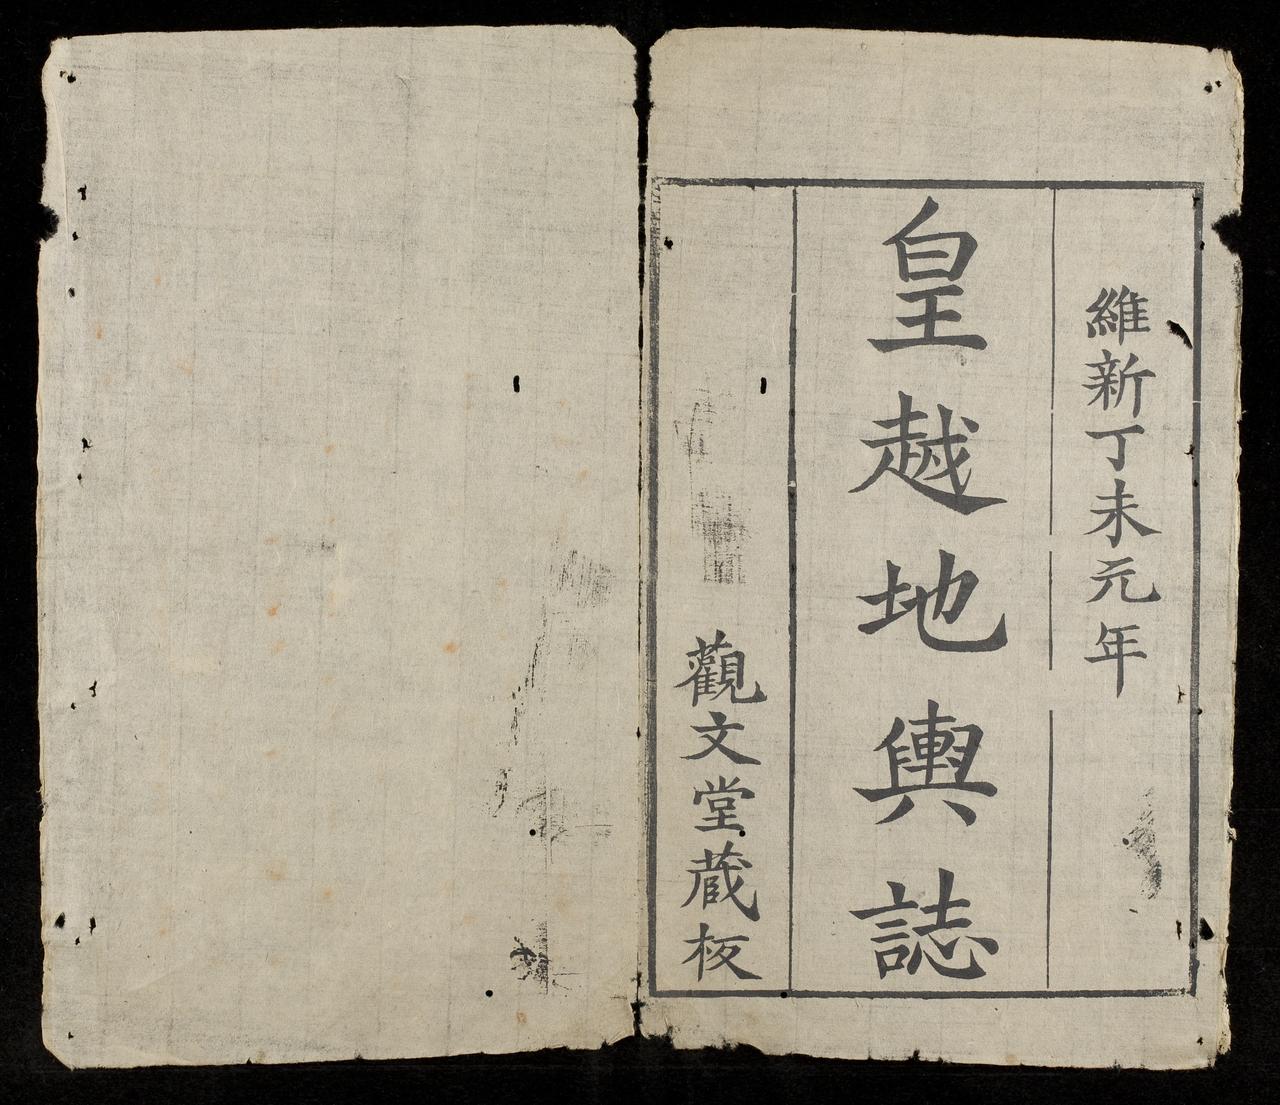 維新丁未元年
皇越地輿誌
觀文堂蔵板